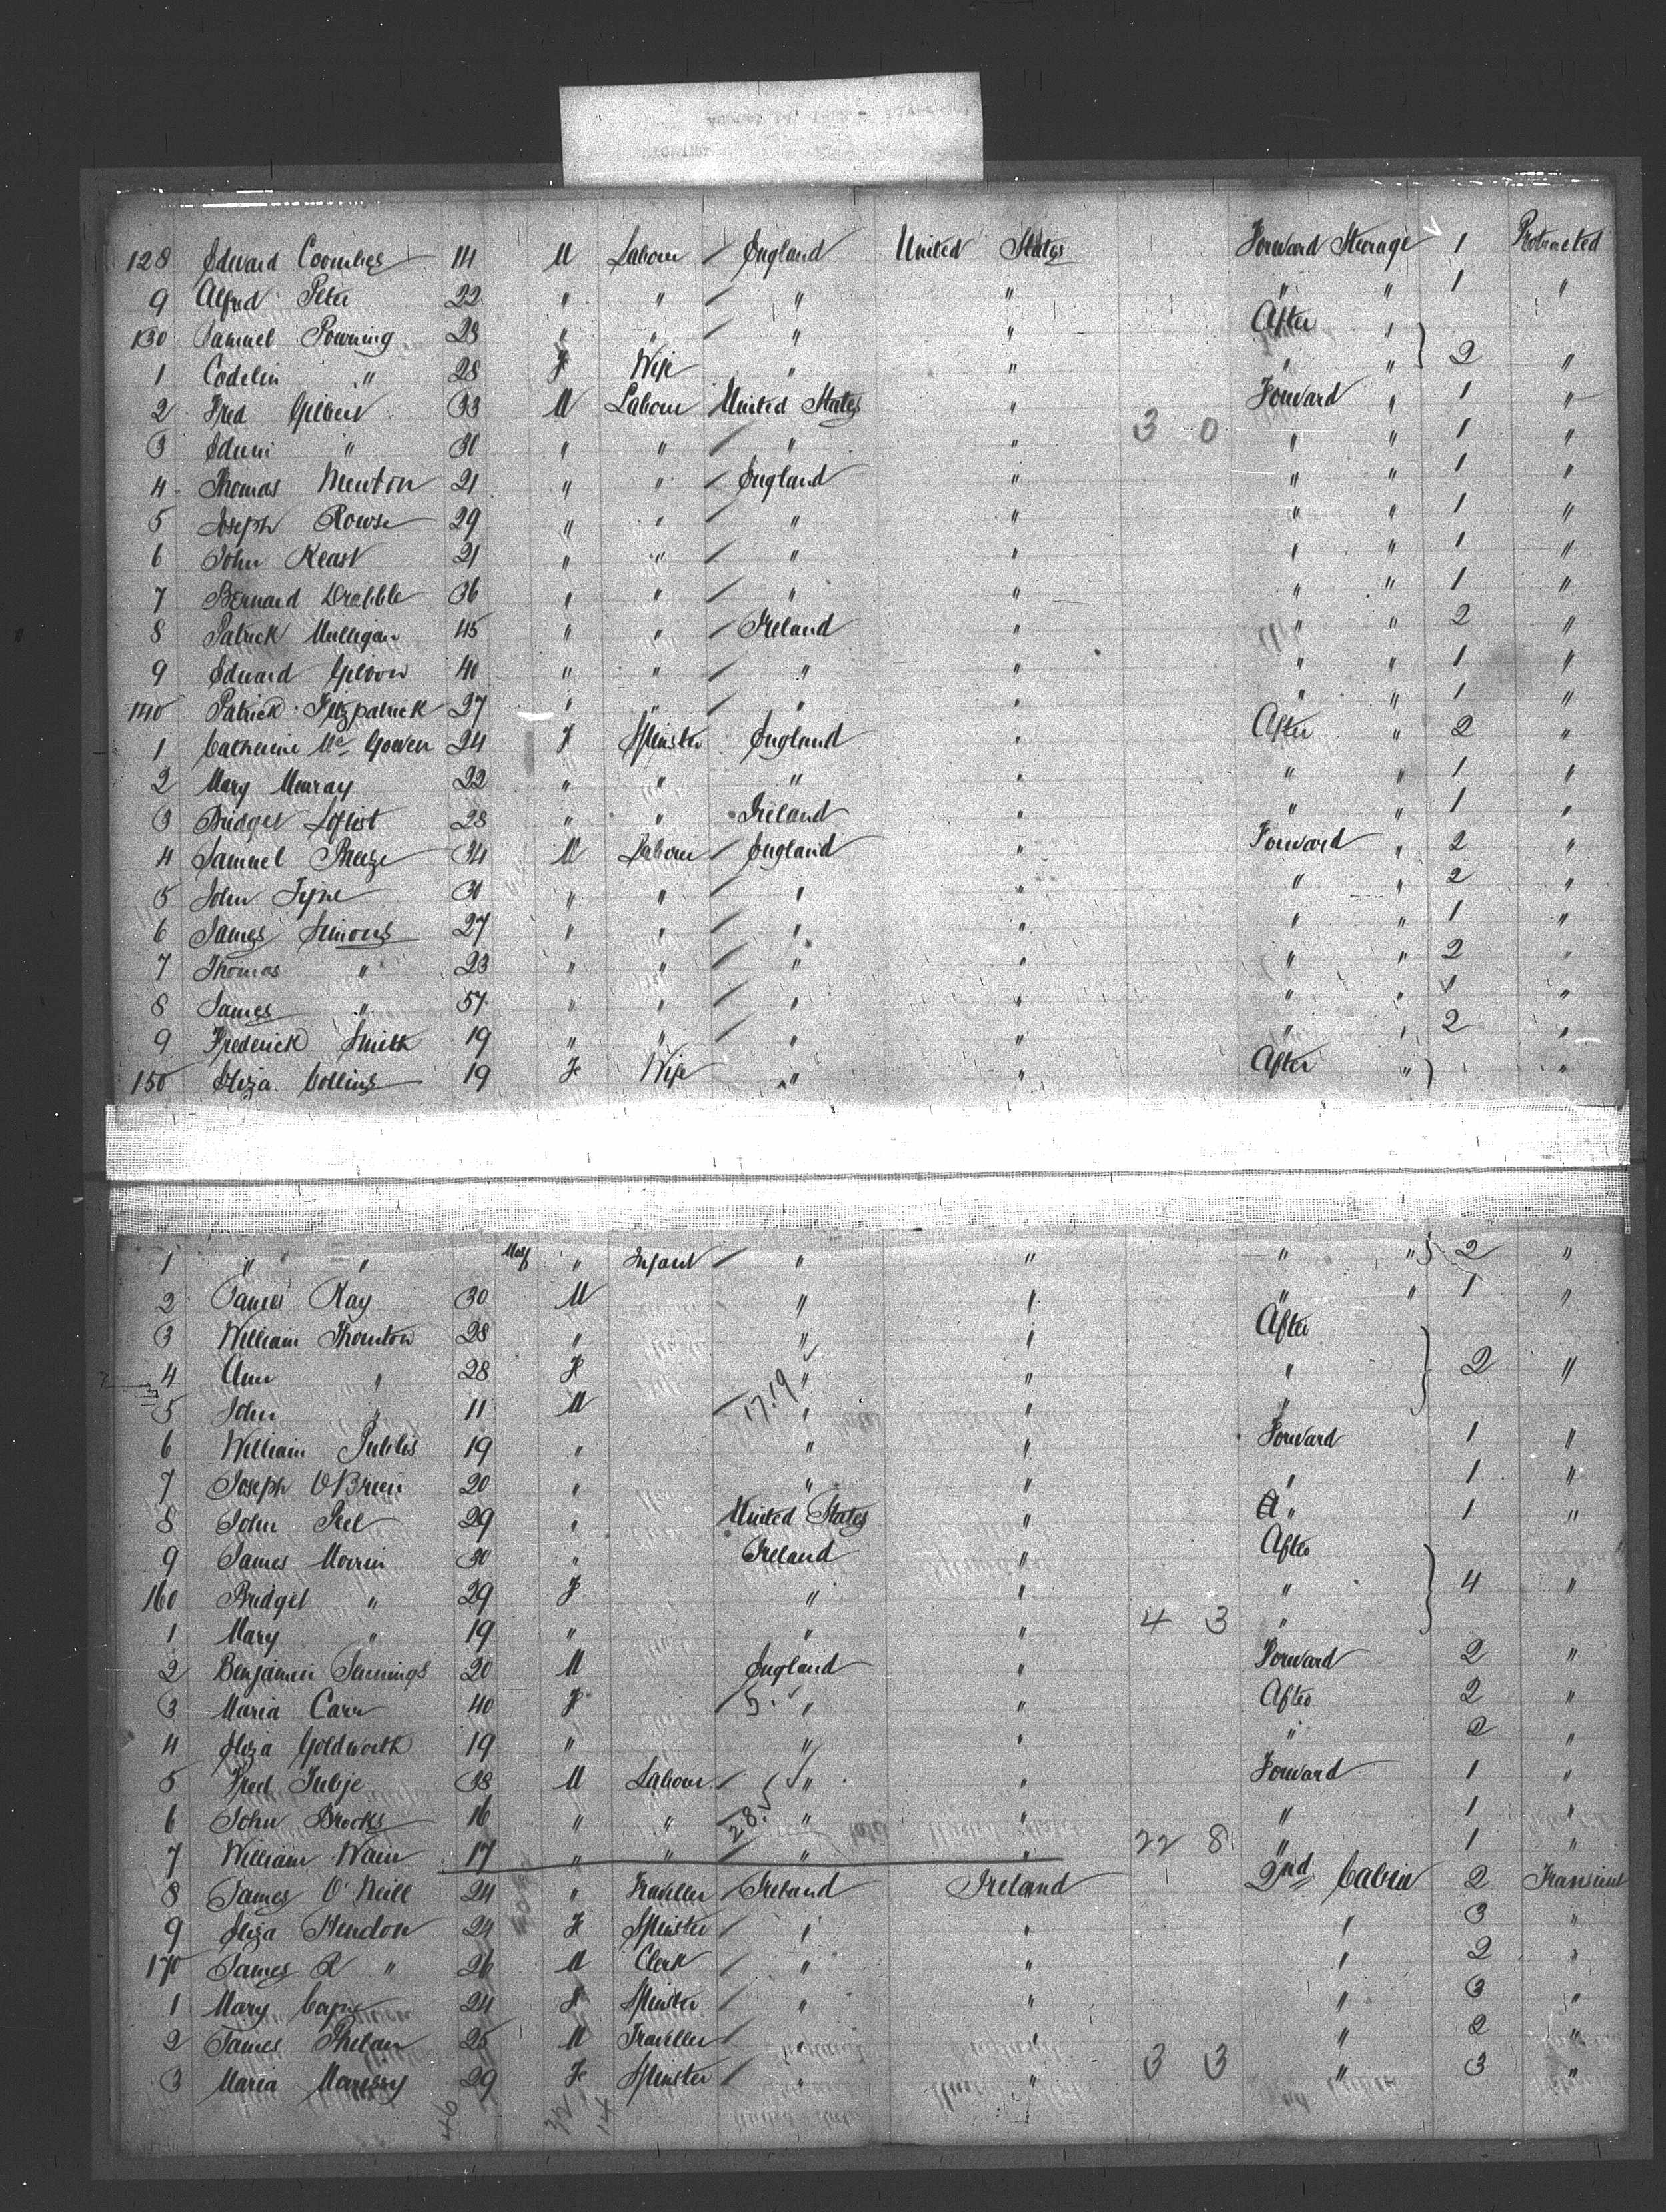 128 Edward Coombes 14 M Labour / England United States Forward Steerage 1 Protracted
9 Alfred Peter 22 " " / " " " " 1 "
130 Samuel Powning 28 " " / " " After "
1 " 28 F Wife " " " " 2 "
2 Fred Gilbert 33 M Labour United States " Forward " 1 "
3 Edwin " 31 " " / " " 3 0 " " 1 "
4 Thomas Newton 21 " " / England " " " 1 "
5 Joseph Rowse 29 " " / " " " " 1 "
6 John Keast 21 " " / " " " " 1 "
7 Bernard Drabble 36 " " / " " " " 1 "
8 Patrick Mulligan 45 " " / Ireland " " " 2 "
9 Edward 40 " " / " " " " 1 "
140 Patrick Fitzpatrick 27 " " " " " " 1 "
1 Catherine Mc Gowen 24 F Spinster England " After " 2 "
2 Mary Murray 22 " " " " " " 1 "
3 Bridget 28 " " Ireland " " " 1 "
4 Samuel 34 M Labour / England " Forward " 2 "
5 John 31 " " / " " " " 2 "
6 James Simons 27 " " / " " " " 1 "
7 Thomas " 23 " " / " " " " 2 "
8 James " 57 " " / " " " " 1 "
9 Frederick Smith 19 " " / " " " " 2 "
150 Eliza Collins 19 F Wife " " After " "
1 " " " Infant / " " " " 2 "
2 James Kay 30 M " " " " 1 "
3 William Thornton 28 " " " After
4 Ann " 28 F " " " 2 "
5 John " 11 M / 17.19 " " "
6 William 19 " " " Forward 1 "
7 Joseph O'Brien 20 " " " " 1 "
8 John Peel 29 " United States " " 1 "
9 James Morrin 30 " Ireland " After
160 Bridget " 29 F " " " 4 "
1 Mary " 19 " " " 4 3 "
2 Benjamin Jennings 20 M England " Forward 2 "
3 Maria Carr 40 F 5. " " After 2 "
4 Eliza Goldworth 19 " " " " 2 "
5 Fred 38 M Labour / " " Forward 1 "
6 John Brooks 16 " " / 28. " " " 1 "
7 William Wain 17 " " / " " 22 8 " 1 "
8 James O'Neill 24 " Traveller / Ireland Ireland 2nd Cabin 2 Transient
9 Eliza 24 F Spinster / " " " 3 "
170 James R " 26 M Clerk / " " " 2 "
1 Mary 24 F Spinster / " " " 3 "
2 James Phelan 25 M Traveller / " " 2 "
3 Maria 29 F Spinster / " " 3 3 " 3 "
46 32 14